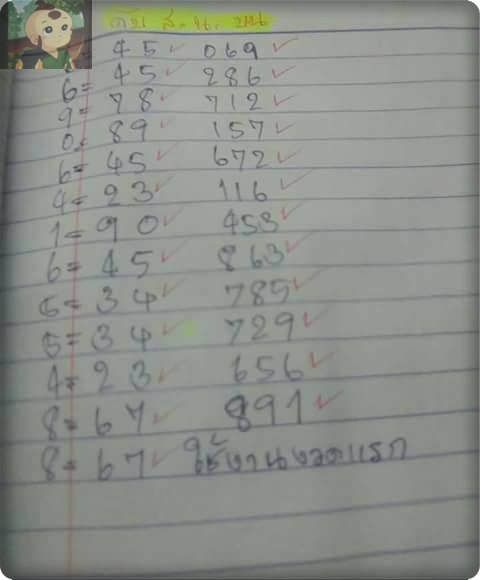 45✓ 069✓
6= 45✓ 286✓
9= 78✓ 712✓
0= 89✓ 157✓
6= 45✓ 672✓
4= 23✓ 116✓
1= 90✓ 453✓
6= 45✓ 863✓
5= 34✓ 785✓
5= 34✓ 729✓
4= 23✓ 656✓
8= 67✓ 891✓
8= 67✓ ใช้งานงวดแรก